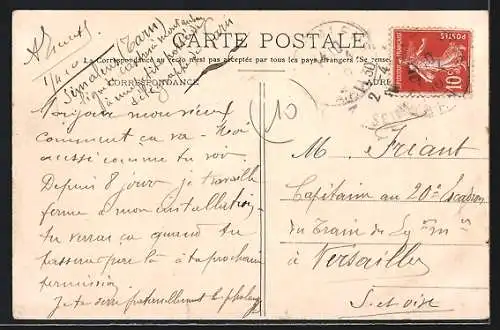 CARTE POSTALE
La Correspondance au recto n'est pas acceptée par tous les pays étrangers (Se rense
CORRESPONDANCE
(Tarn)
Bonjour mon vieux
comment ça va - Moi
aussi comme tu vois.
Depuis 8 jours je travaille
ferme a mon installation,
tu verras ça quand tu
passeras par là à ta prochaine
permission.
Je te serre paternellement la phalange
10
POSTES
10
M. Friant
Capitaine au 20e Escadron
du Train de
Versailles
S. et Oise